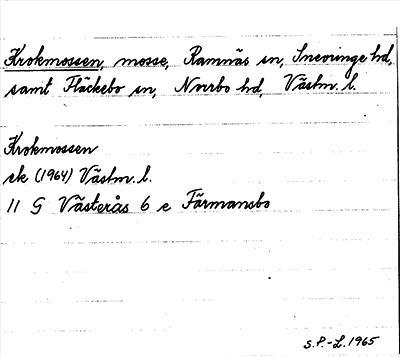 Krokmossen, mosse, Ramnäs sn, Snevringe hd,
samt Fläckebo sn, Norrbo hd, Västm. l.
Krokmossen
ek (1964) Västm. l.
11 G Västerås 6 e Färmansbo
S.P.-L. 1965